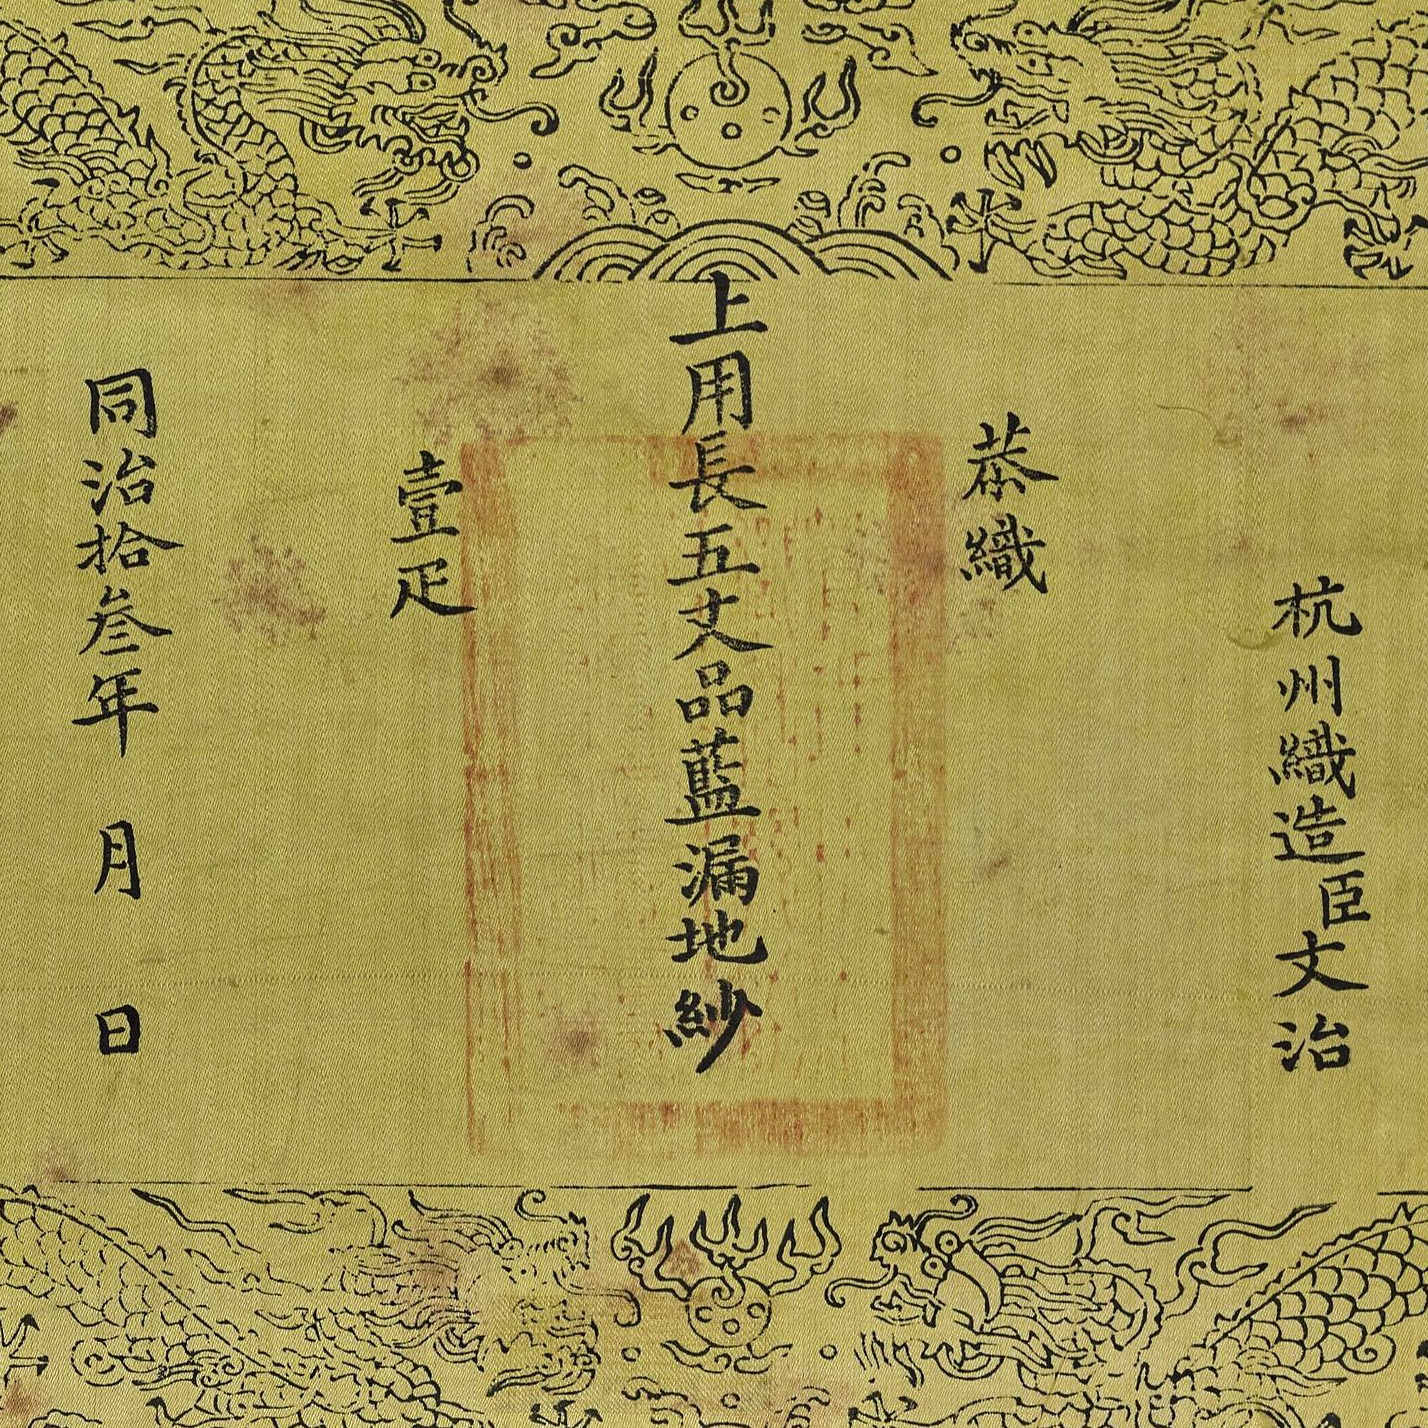 杭州織造臣文治
恭織
上用長五丈品藍漏地紗
壹疋
同治拾叁年 月 日